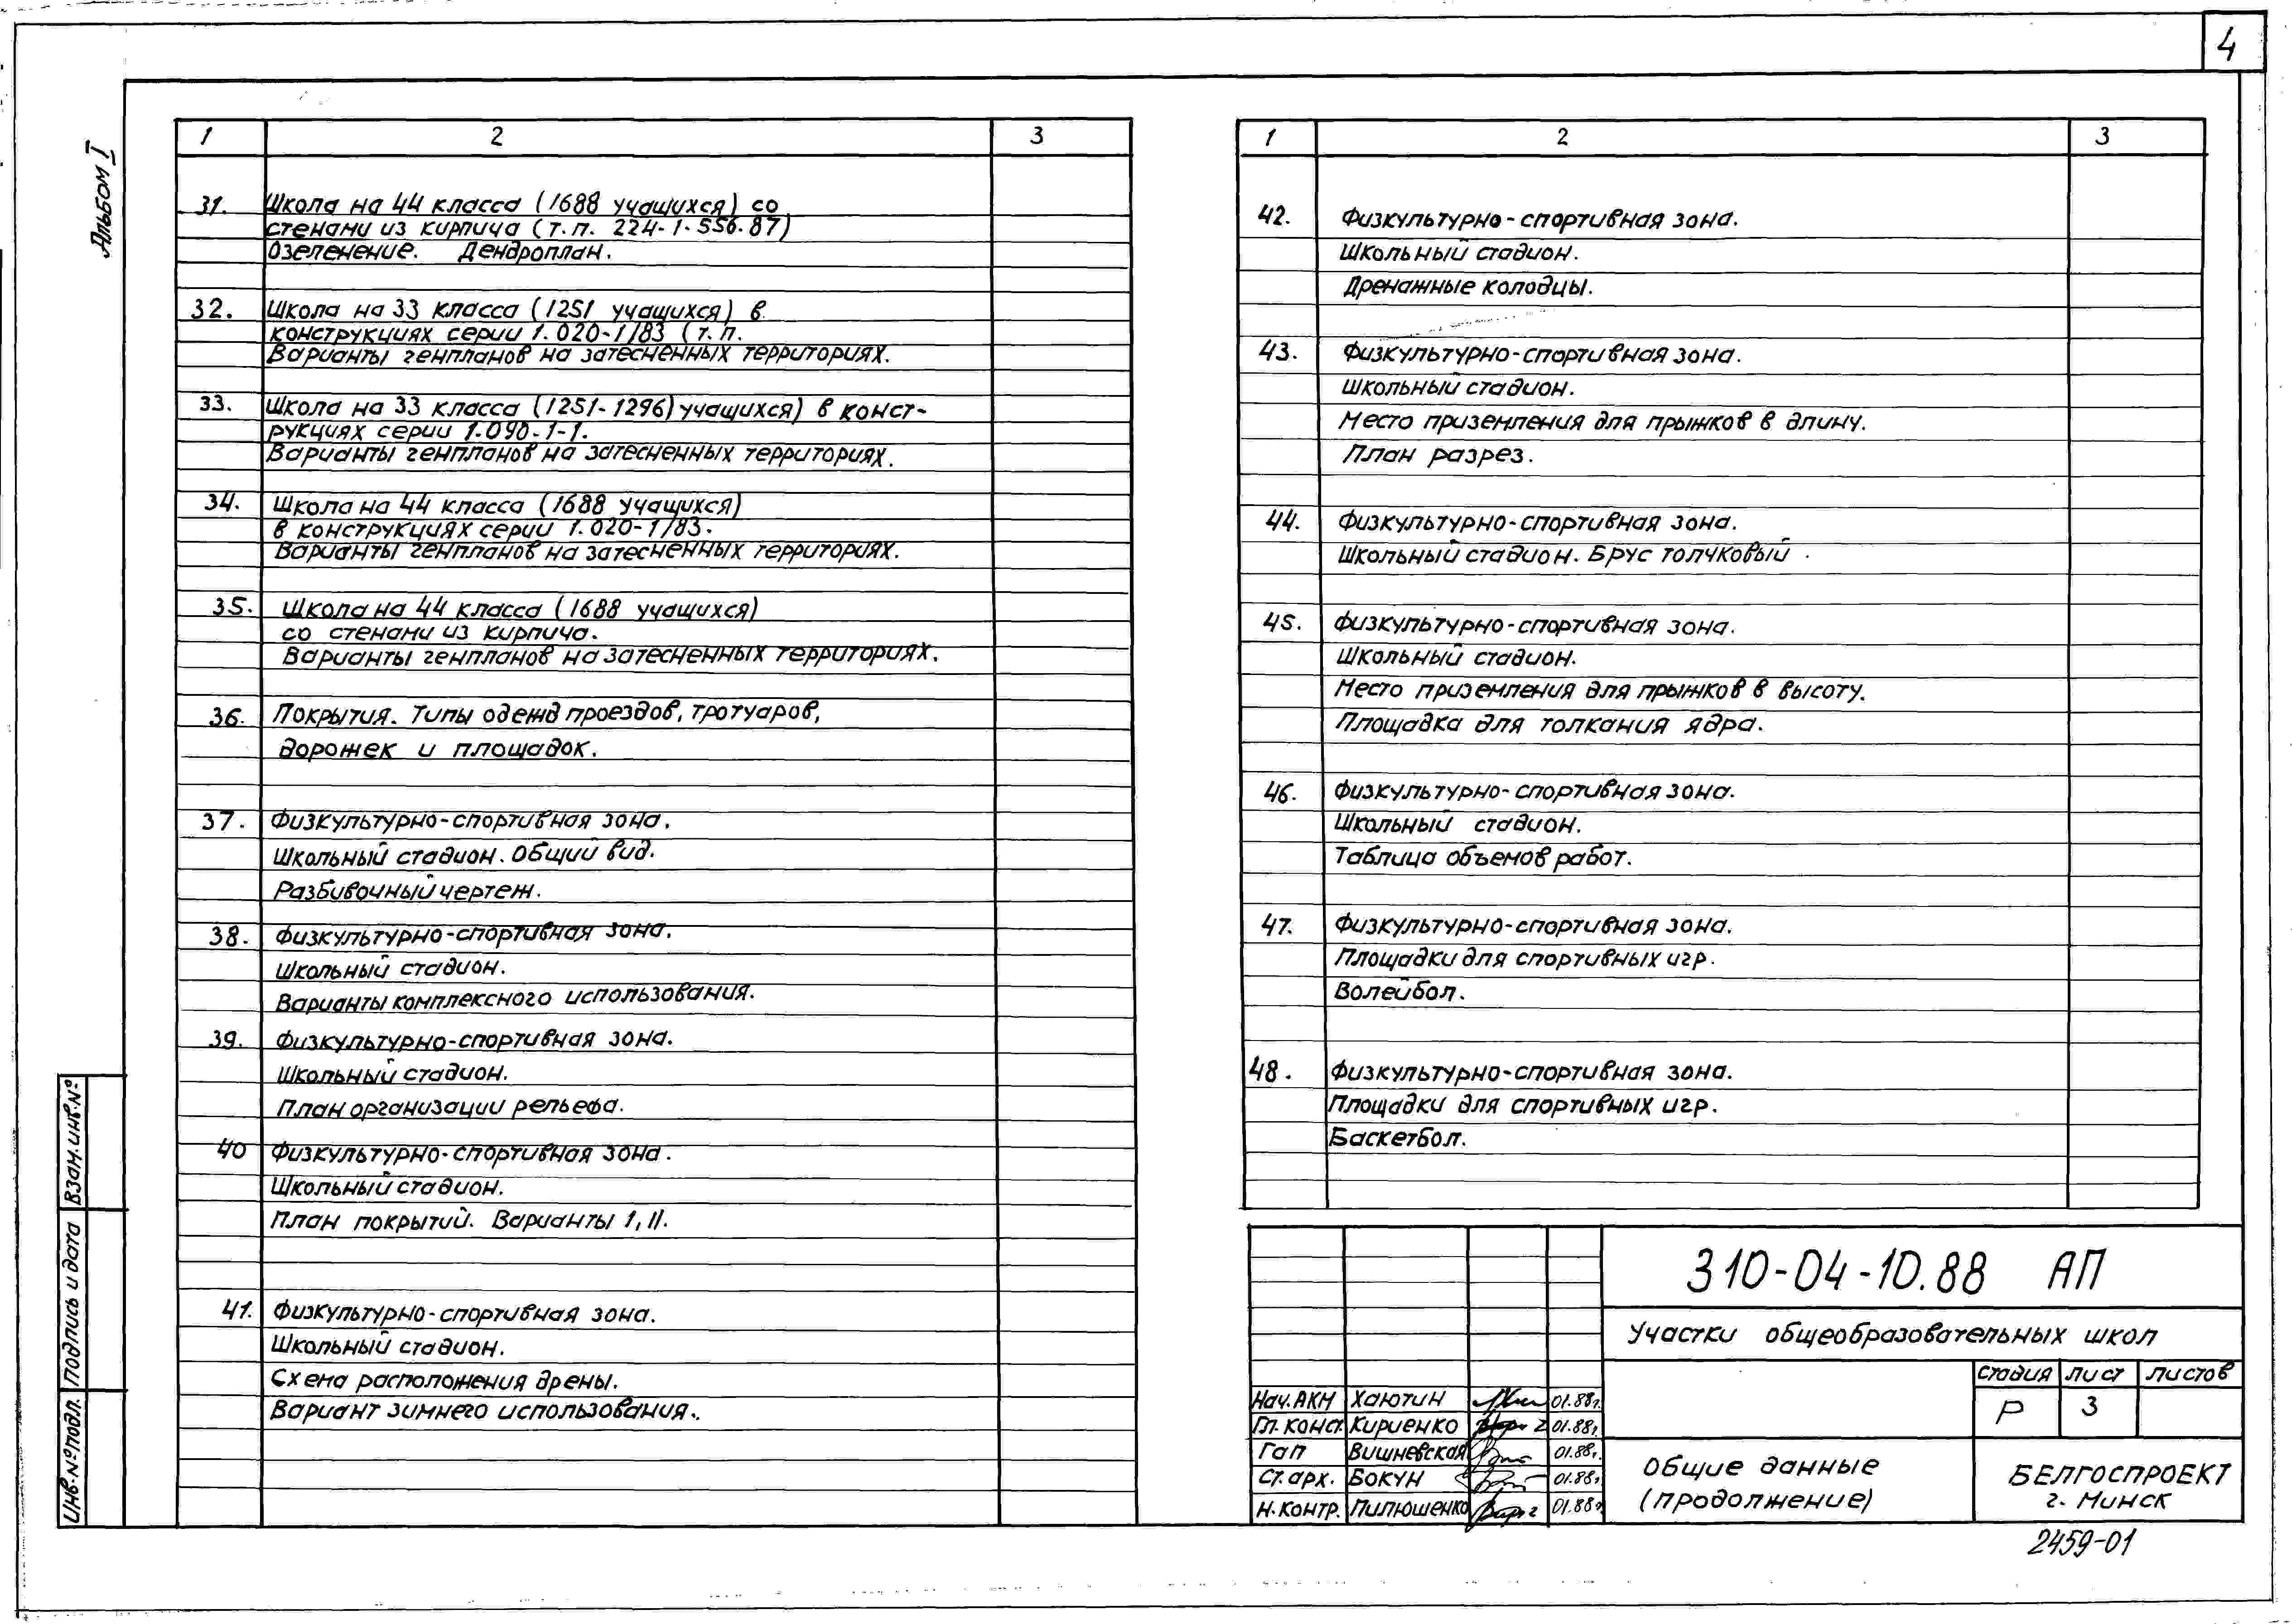 4
Альбом I
1 2 3
31. Школа на 44 класса (1688 учащихся) со
стенами из кирпича (т.п. 224-1-556.87)
Озеленение. Дендроплан.
32. Школа на 33 класса (1251 учащихся) в
конструкциях серии 1.020-1/83 (т.п.
Варианты генпланов на затесненных территориях.
33. Школа на 33 класса (1251-1296) учащихся) в конст-
рукциях серии 1.090-1-1.
Варианты генпланов на затесненных территориях.
34. Школа на 44 класса (1688 учащихся)
в конструкциях серии 1.020-1/83.
Варианты генпланов на затесненных территориях.
35. Школа на 44 класса (1688 учащихся)
со стенами из кирпича.
Варианты генпланов на затесненных территориях.
36. Покрытия. Типы одежд проездов, тротуаров,
дорожек и площадок.
37. Физкультурно-спортивная зона.
Школьный стадион. Общий вид.
Разбивочный чертеж.
38. Физкультурно-спортивная зона.
Школьный стадион.
Варианты комплексного использования.
39. Физкультурно-спортивная зона.
Школьный стадион.
План организации рельефа.
40 Физкультурно-спортивная зона.
Школьный стадион.
План покрытий. Варианты I, II.
41. Физкультурно-спортивная зона.
Школьный стадион.
Схема расположения дрены.
Вариант зимнего использования.
1 2 3
42. Физкультурно-спортивная зона.
Школьный стадион.
Дренажные колодцы.
43. Физкультурно-спортивная зона.
Школьный стадион.
Место приземления для прыжков в длину.
План разрез.
44. Физкультурно-спортивная зона.
Школьный стадион. Брус толчковый.
45. Физкультурно-спортивная зона.
Школьный стадион.
Место приземления для прыжков в высоту.
Площадка для толкания ядра.
46. Физкультурно-спортивная зона.
Школьный стадион.
Таблица объемов работ.
47. Физкультурно-спортивная зона.
Площадки для спортивных игр.
Волейбол.
48. Физкультурно-спортивная зона.
Площадки для спортивных игр.
Баскетбол.
310-04-10.88 АП
Участки общеобразовательных школ
стадия лист листов
Р 3
Нач. АКМ Хаютин 01.88г.
Гл. конст. Кириенко 01.88г.
Гап Вишневская 01.88г.
Ст. арх. Бокун 01.88г.
Н. контр. Пилюшенко 01.88г.
Общие данные
(продолжение)
БЕЛГОСПРОЕКТ
г. Минск
2459-01
Взам. инв. №
Подпись и дата
Инв. № подл.